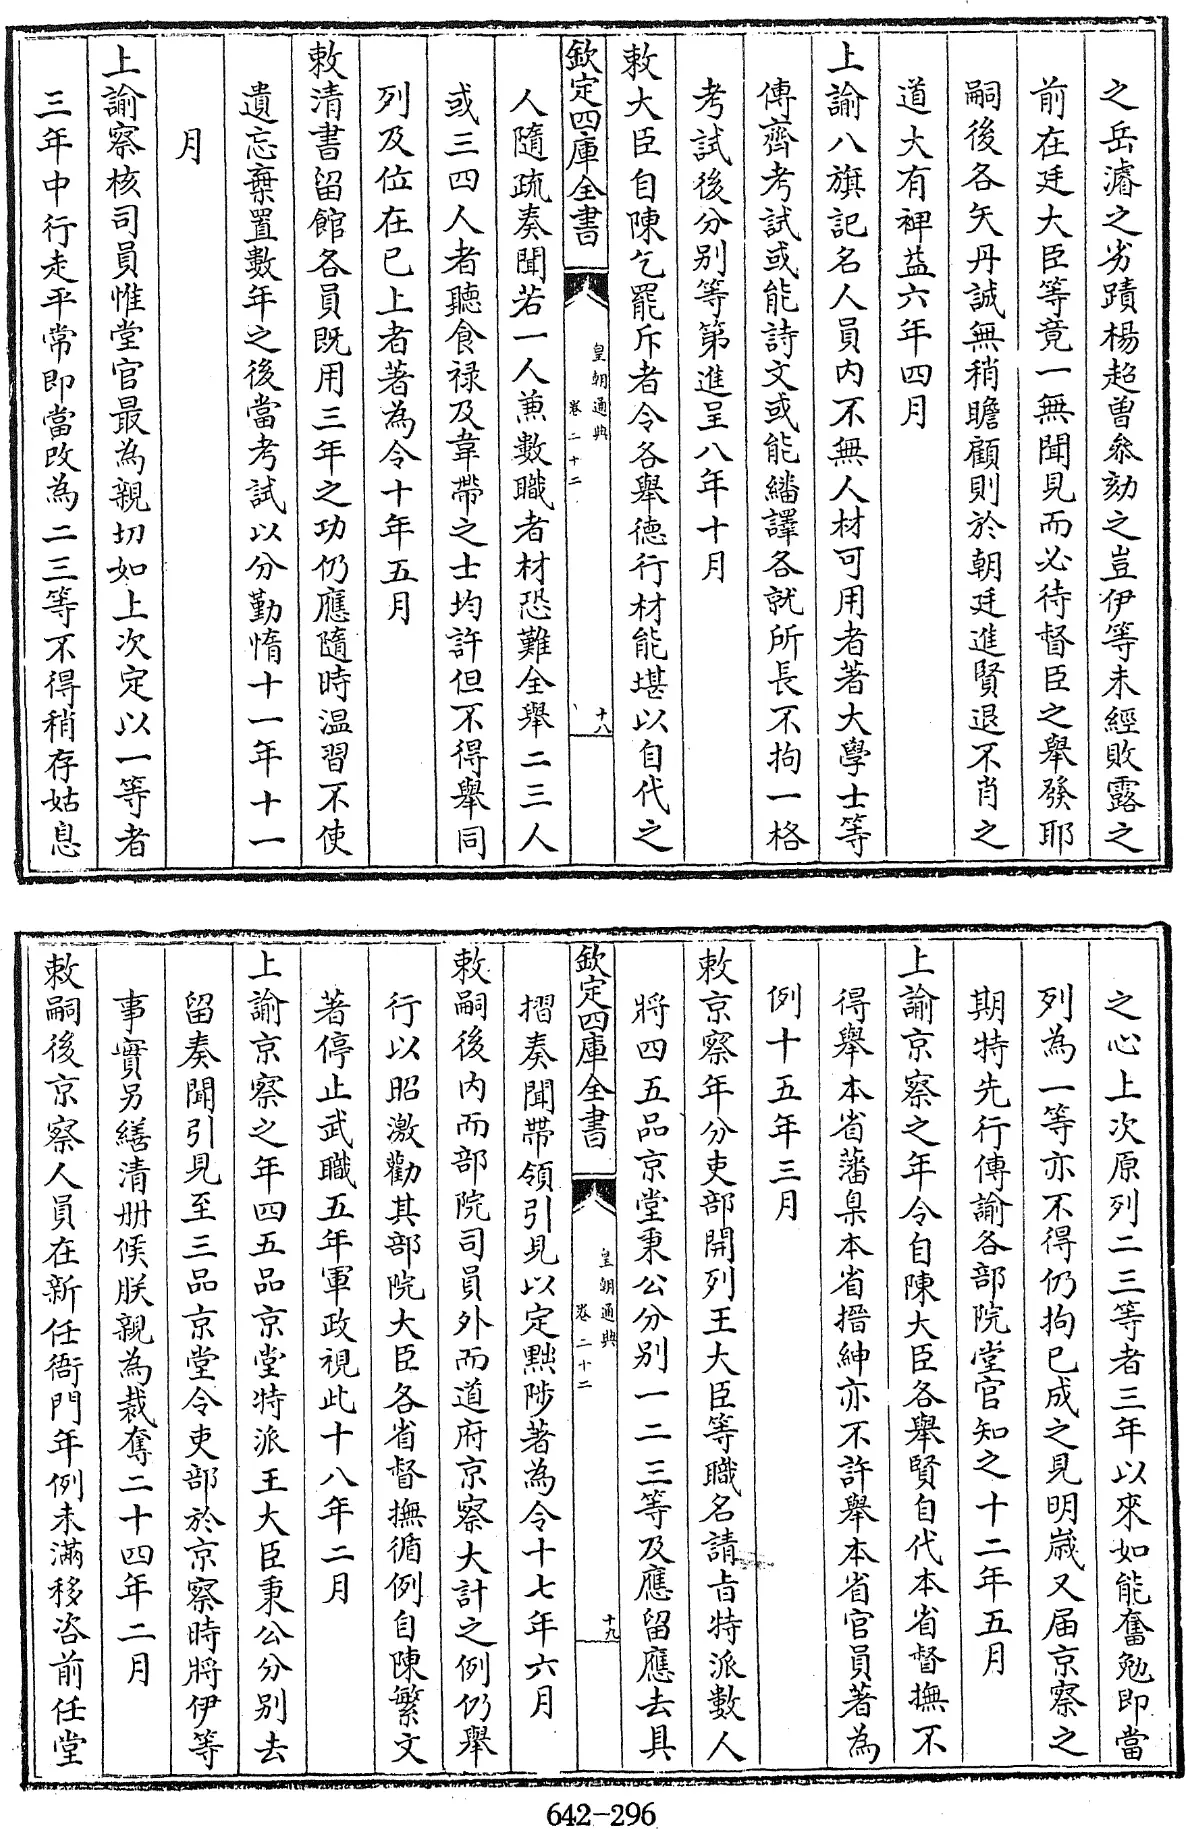 之岳濬之劣蹟楊超曽叅劾之豈伊等未經敗露之
前在廷大臣等竟一無聞見而必待督臣之舉發耶
嗣後各矢丹誠無稍瞻顧則於朝廷進賢退不肖之
道大有裨益六年四月
上諭八旗記名人員内不無人材可用者著大學士等
傳齊考試或能詩文或能繙譯各就所長不拘一格
考試後分别等第進呈八年十月
敕大臣自陳乞罷斥者令各舉德行材能堪以自代之
欽定四庫全書
皇朝通典
卷二十二
十八
人隨疏奏聞若一人兼數職者材恐難全舉二三人
或三四人者聽食禄及韋帶之士均許但不得舉同
列及位在已上者著為令十年五月
敕清書留館各員既用三年之功仍應隨時温習不使
遺忘棄置數年之後當考試以分勤惰十一年十一
月
上諭察核司員惟堂官最為親切如上次定以一等者
三年中行走平常即當改為二三等不得稍存姑息
之心上次原列二三等者三年以來如能奮勉即當
列為一等亦不得仍拘已成之見明歲又届京察之
期特先行傳諭各部院堂官知之十二年五月
上諭京察之年令自陳大臣各舉賢自代本省督撫不
得舉本省藩臬本省搢紳亦不許舉本省官員著為
例十五年三月
敕京察年分吏部開列王大臣等職名請旨特派數人
將四五品京堂秉公分别一二三等及應留應去具
欽定四庫全書
皇朝通典
卷二十二
十九
摺奏聞帶領引見以定黜陟著為令十七年六月
敕嗣後内而部院司員外而道府京察大計之例仍舉
行以昭激勸其部院大臣各省督撫循例自陳繁文
著停止武職五年軍政視此十八年二月
上諭京察之年四五品京堂特派王大臣秉公分别去
留奏聞引見至三品京堂令吏部於京察時將伊等
事實另繕清册候朕親為裁奪二十四年二月
敕嗣後京察人員在新任衙門年例未滿移咨前任堂
642-296